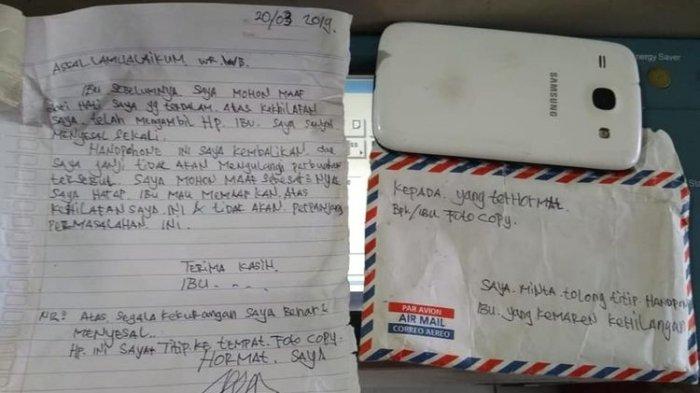 20/03 2019.
ASSALLAMUALAIKUM WR. WB.
IBU SEBELUMNYA SAYA MOHON MAAF
DARI HATI SAYA yg TERDALAM. ATAS KEKHILAFAN
SAYA. telah MENGAMBIL HP. IBU. SAYA
MENYESAL SEKALI.
HANDPHONE INI SAYA KEMBALIKAN. dan
SAYA JANJI TIDAK AKAN MENGULANGI
tersebut. SAYA MOHON MAAF
SAYA HARAP. IBU MAU MEMAAFKAN. ATAS
KEHILAFAN SAYA INI & tidak AKAN
PERMASALAHAN INI.
TERIMA KASIH.
IBU. . . .
NB: ATAS SEGALA KEKURANGAN SAYA BENAR2
MENYESAL..
HP. INI SAYA TITIP KE TEMPAT. FOTO COPY.
HORMAT. SAYA
SAMSUNG
Energy Saver
KEPADA. yang terHORMAT.
BPK/IBU FOTO COPY.
SAYA. MINTA. tolong titip
IBU. yang KEMAREN KEHILANGAN
PAR AVION
AIR MAIL
CORREO AEREO